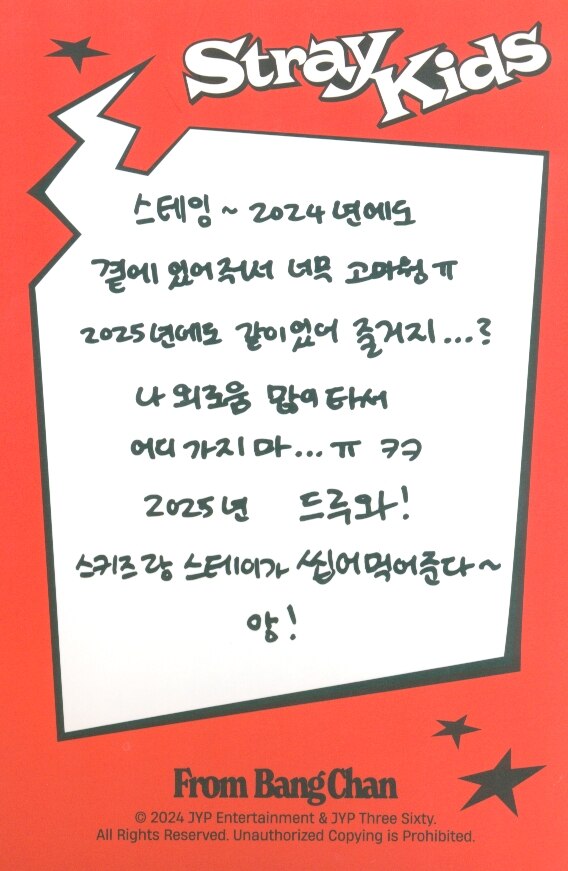 Stray Kids
스테잉~ 2024년에도
곁에 있어줘서 너무 고마웡ㅠ
2025년에도 같이있어 줄거지...?
나 외로움 많이 타서
어디 가지 마...ㅠ ㅋㅋ
2025년 드루와!
스키즈랑 스테이가 씹어먹어준다~
앙!
From Bang Chan
© 2024 JYP Entertainment & JYP Three Sixty.
All Rights Reserved. Unauthorized Copying is Prohibited.